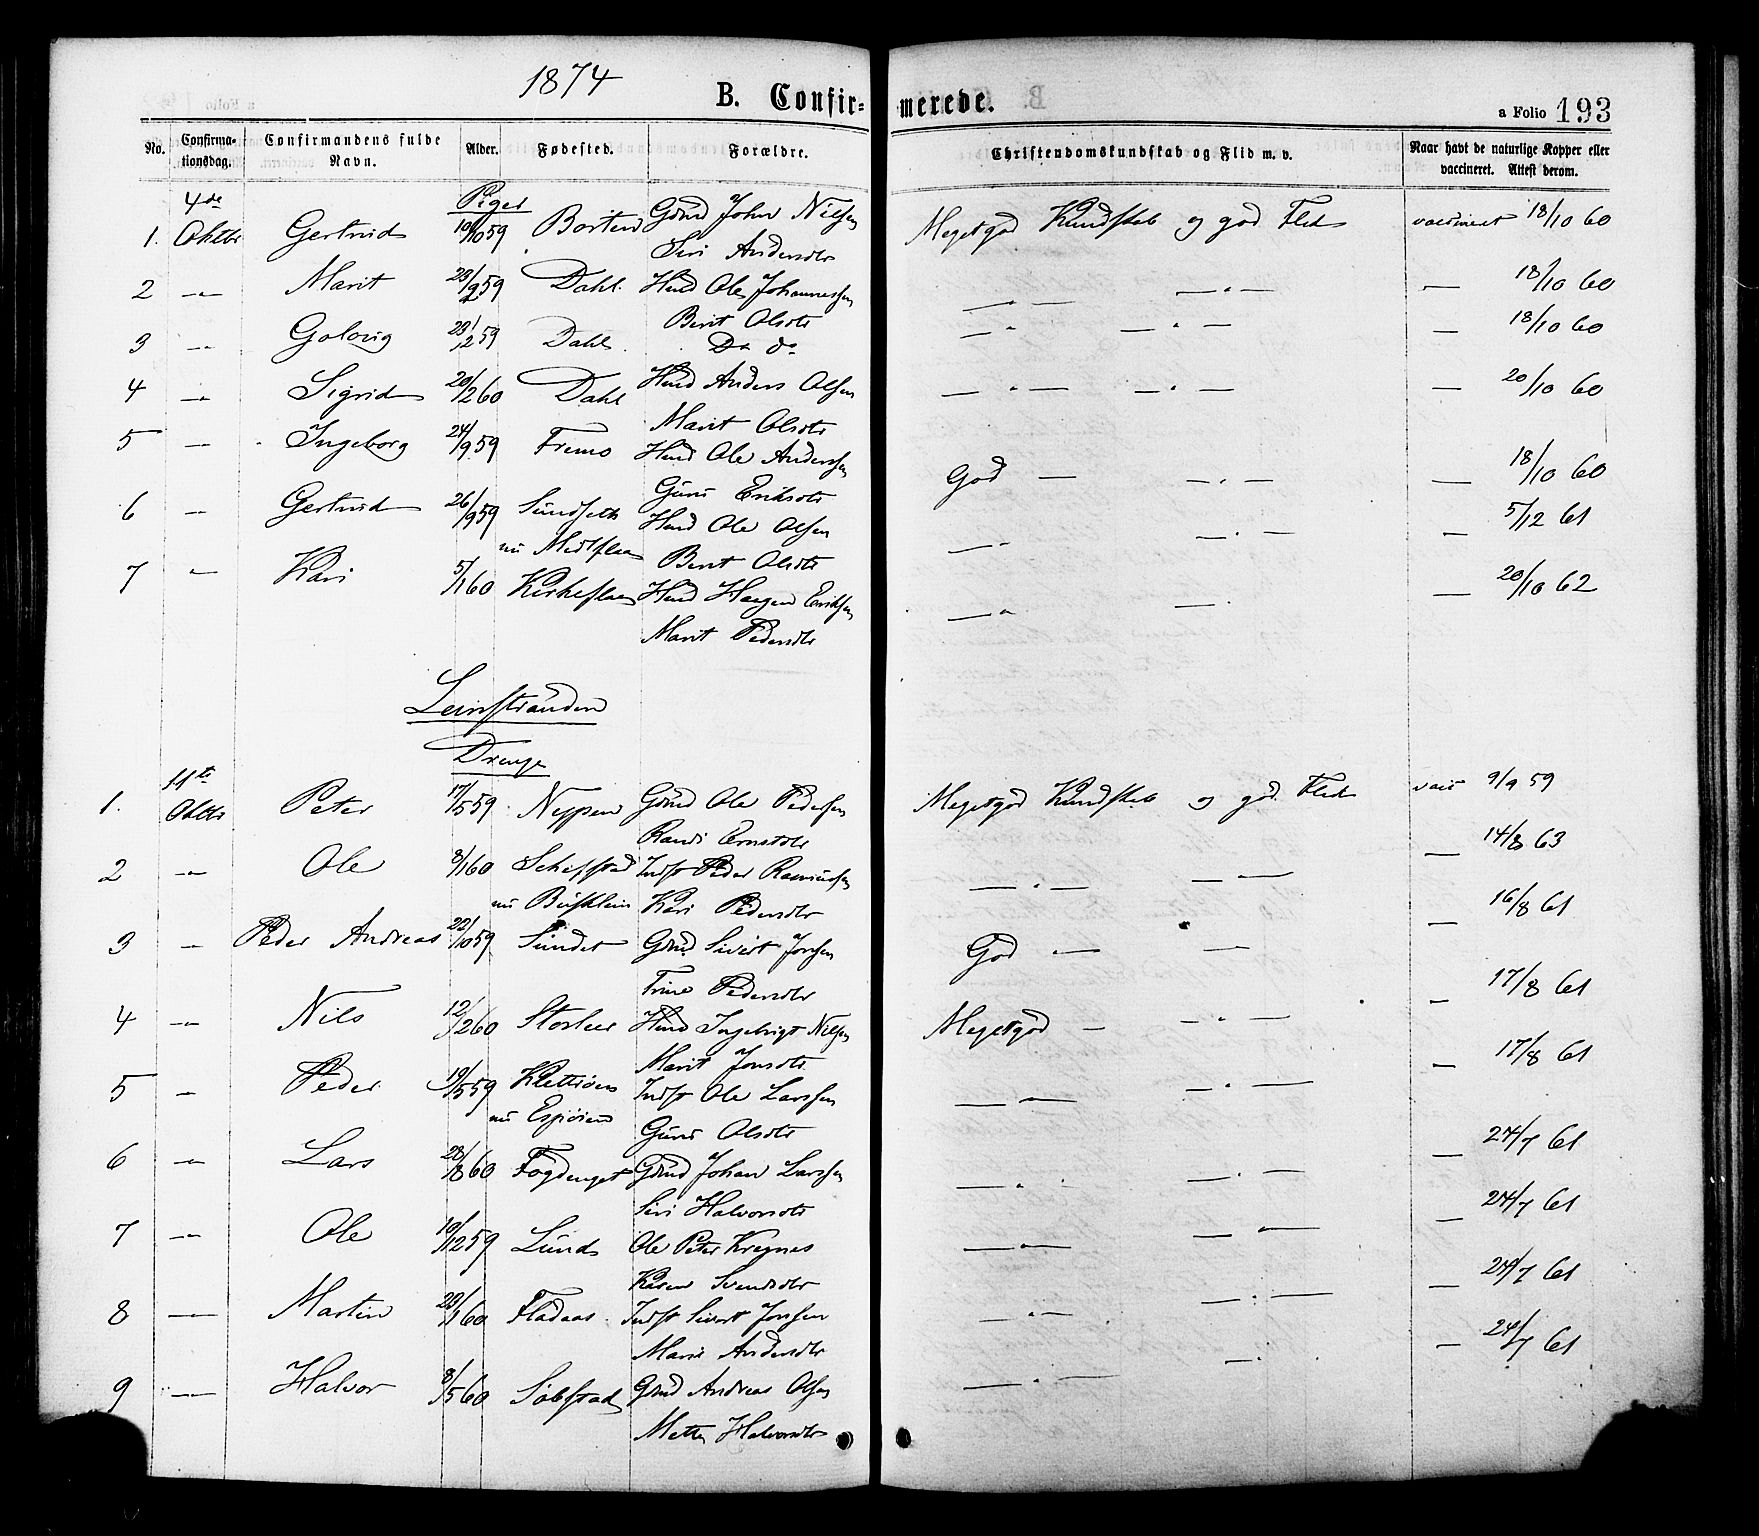 1874
B. Confirmerede.
a Folio 193
No. Confirmationsdag. Confirmandens fulde Navn. Alder. Fødested. Forældre. Christendomskundskab og Flid m. v. Naar havt de naturlige Kopper eller vaccineret. Attest derom.
Piger
4de
1. Oktbr Gertrud 19/10 59 Borten Grmd John Nilsen Meget god Kundskab og god Flid vaccineret 18/10 60
Siri Andersdtr
2 —"— Marit 23/9 59 Dahl Husmd Ole Johannessen —"— —"— — 18/10 60
Berit Olsdtr
3 —"— Golvig 23/12 59 Dahl Do do —"— —"— — 18/10 60
4 —"— Sigrid 20/2 60 Dahl Husmd Anders Olsen —"— —"— — 20/10 60
Marit Olsdtr
5 —"— Ingeborg 24/9 59 Fremo Husmd Ole Anderssen God — —"— — 18/10 60
Guru Eriksdtr
6 —"— Gertrud 26/9 59 Sundseth Husmd Ole Olsen —"— —"— — 5/12 61
nu Berit Olsdtr
7 —"— Kari 5/1 60 Kirkeflaa Husmd Haagen Eriksen —"— —"— — 20/10 62
Marit Pedersdtr
Leinstranden
Drenge
11te
1. Oktbr Peter 17/5 59 Nyppen Grmd Ole Pedersen Meget god Kundskab og god Flid vacc 9/9 59
Randi Arntsdtr
2 —"— Ole 8/1 60 Schefstad Indst Peder Rasmussen —"— —"— — 14/8 63
nu Busklein Kari Pedersdtr
3 — Peder Andreas 22/10 59 Sundet Grmd Sivert Jonsen God — — — 16/8 61
Trine Pedersdtr
4 —"— Nils 12/2 60 Storler Husmd Ingebrigt Nilsen Meget god — —"— — 17/8 61
Marit Jonsdtr
5 — Peder 19/5 59 Klettisen Indst Ole Larssen —"— —"— — 17/8 61
nu Espiøien Guru Olsdtr
6 —"— Lars 28/8 60 Fogdenget Grmd Johan Larssen —"— —"— — 24/7 61
Siri Halvorsdtr
7 —"— Ole 19/12 59 Lund Ole Peter Kregnes —"— —"— — 24/7 61
Karen Svendsdtr
8 — Martin 29/1 60 Fladaas Indst Sivert Jonsen —"— —"— — 24/7 61
Marit Andersdtr
9 —"— Halvor 8/5 60 Solstad Grmd Andreas Olsen —"— —"— — 24/7 61
Mette Halvorsdtr